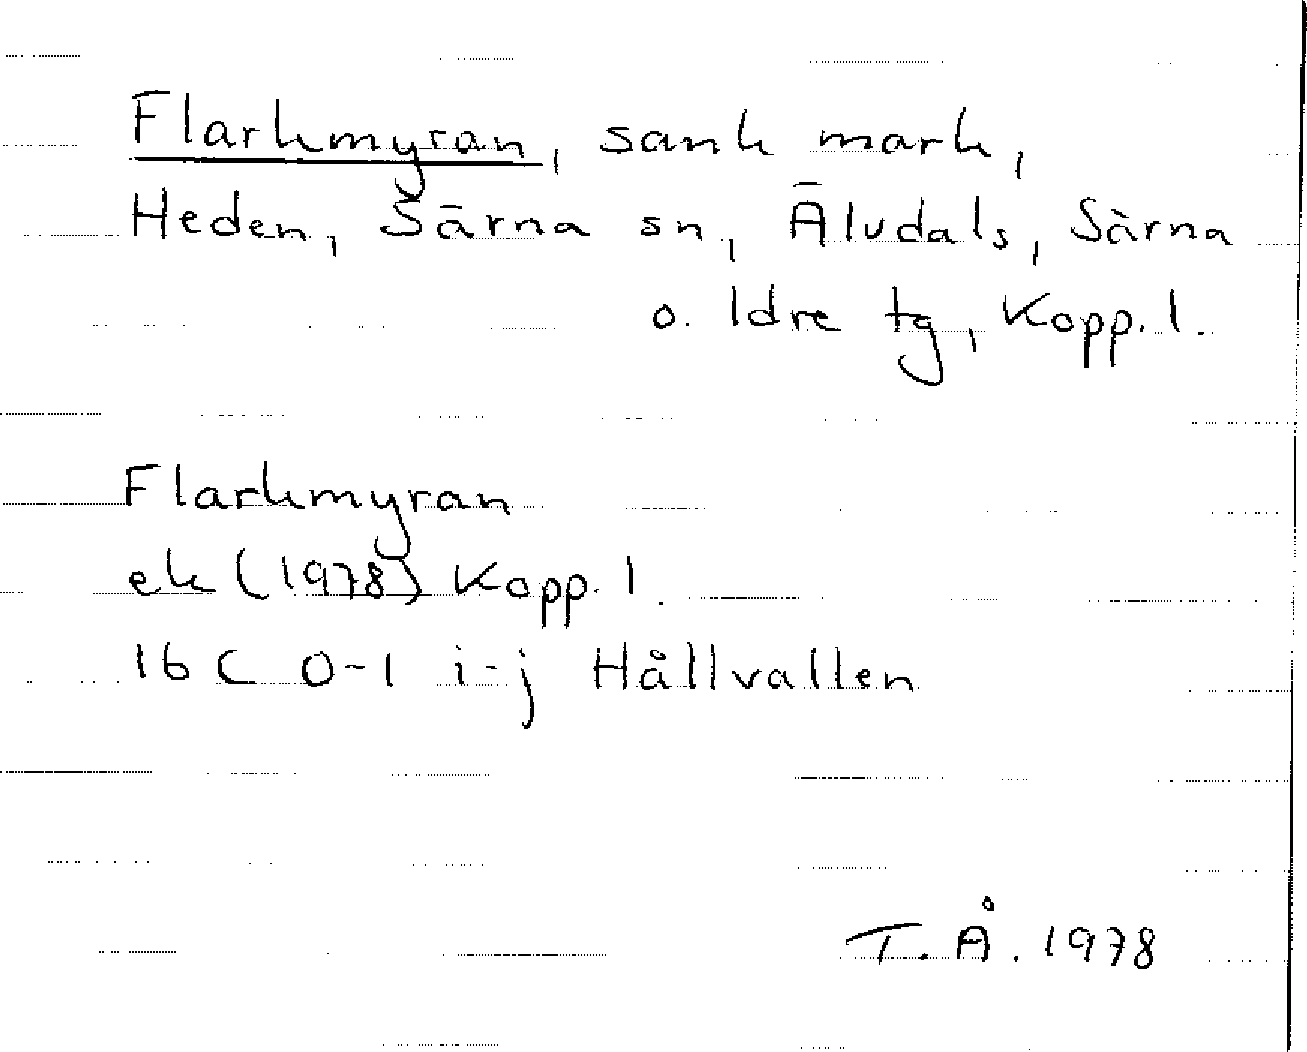 Flarkmyran, sank mark,
Heden, Särna sn, Äludals, Särna
o. Idre tg, Kopp. l.
Flarkmyran
ek (1978) Kopp. l.
16 C 0-1 i-j Hållvallen
T.Å. 1978